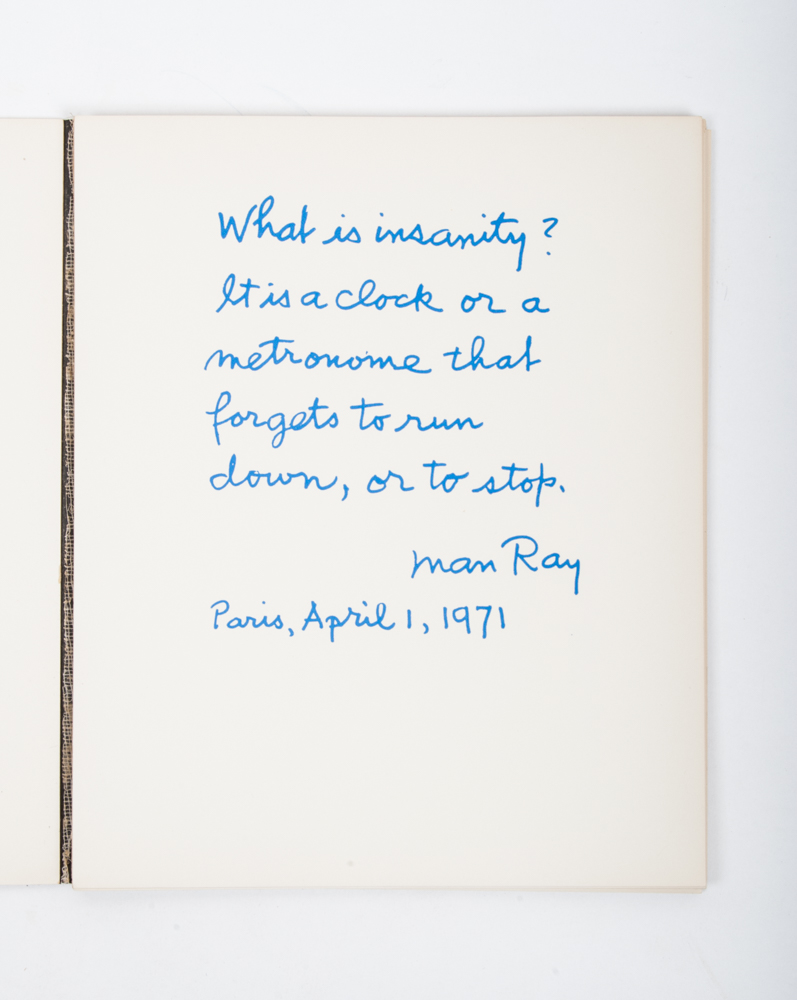 What is insanity?
It is a clock or a
metronome that
forgets to run
down, or to stop.
Man Ray
Paris, April 1, 1971